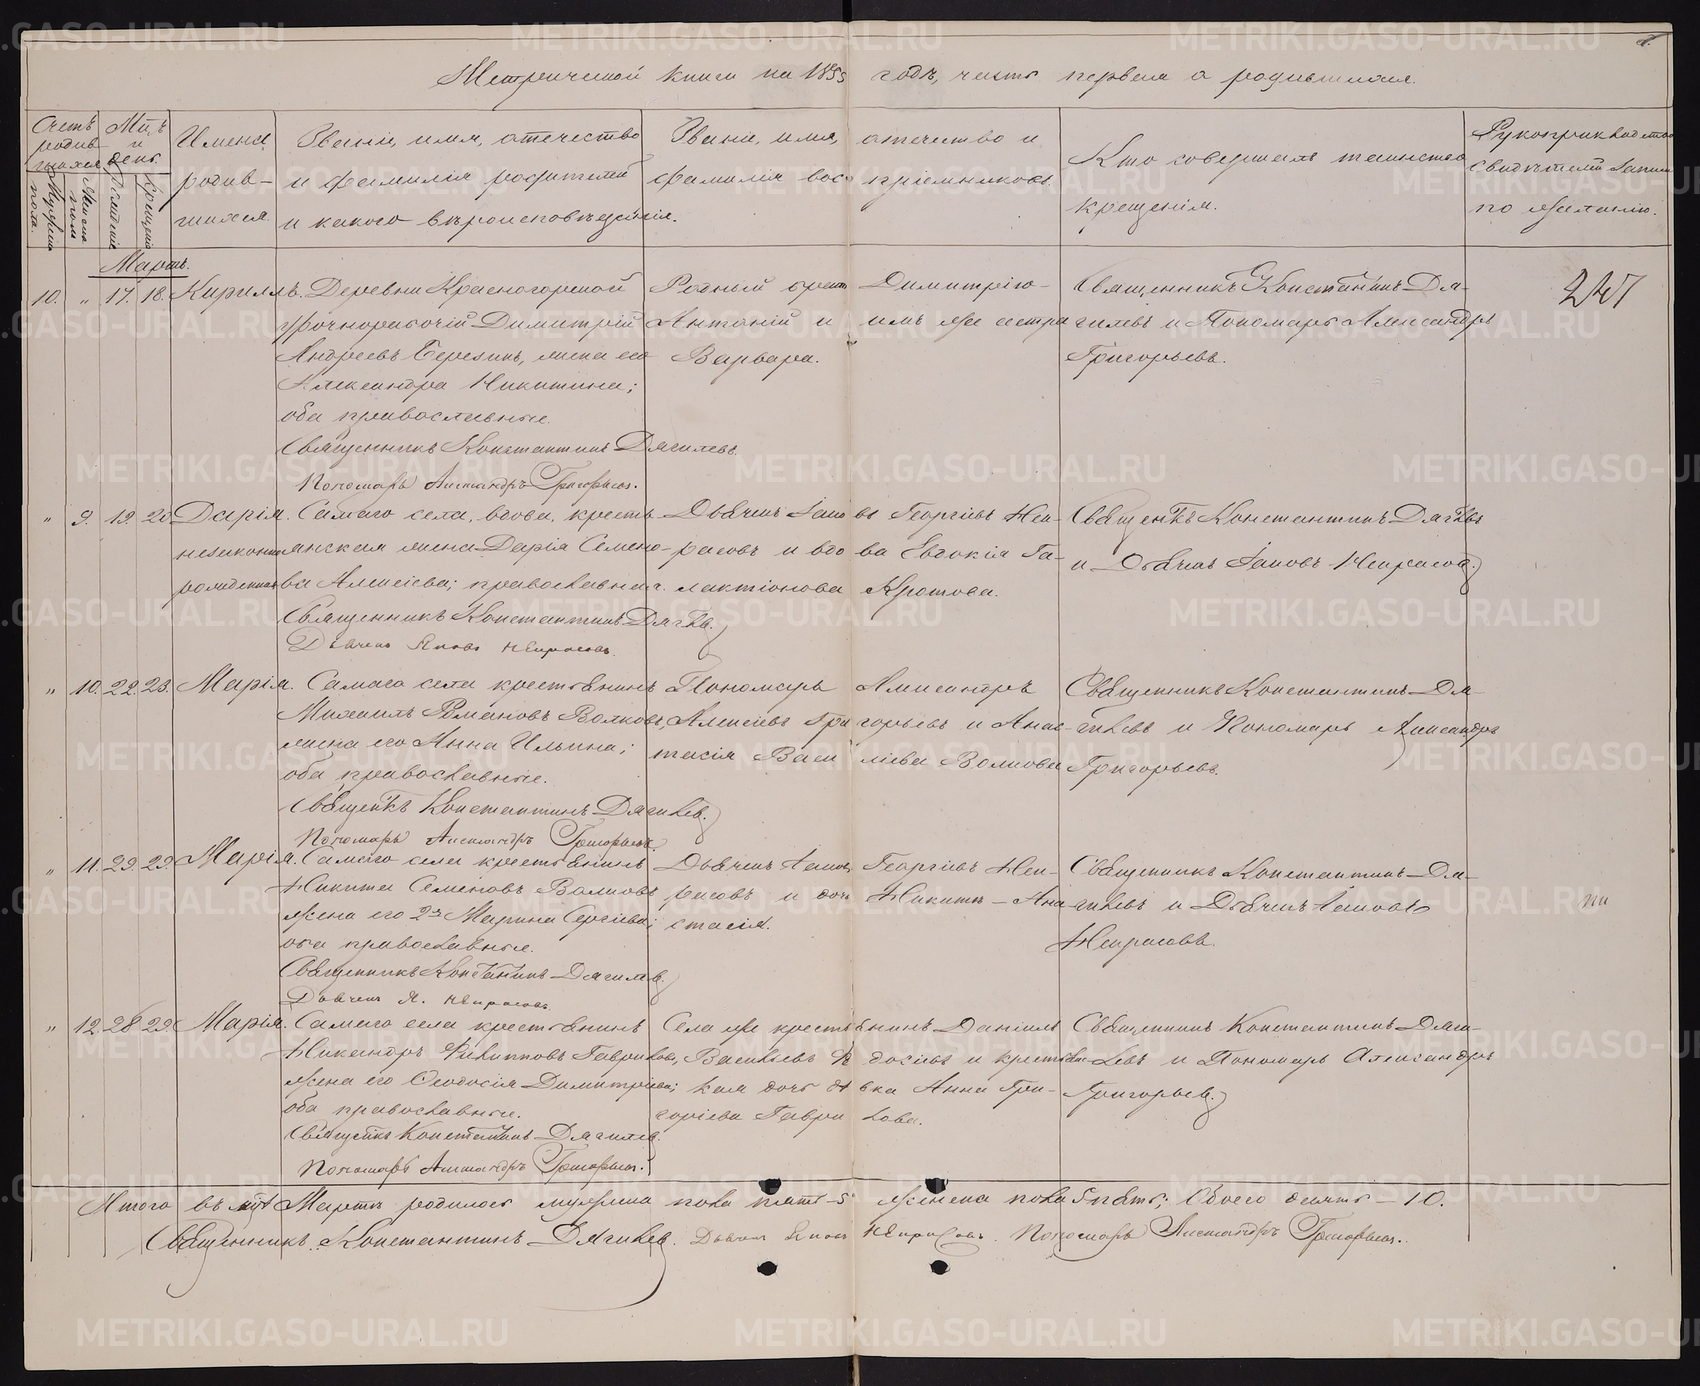 Метрической книги на 1855 годъ, часть первая о родившихся.
Счетъ родившихся
Мѣц. и день.
Имена родившихся
Званіе, имя, отечество и фамилія родителей и какого вѣроисповѣданія.
Званіе, имя, отечество и фамилія воспріемниковъ.
Кто совершалъ таинство крещенія.
Рукоприкладство свидѣтелей записи по желанію.
Мужеска пола.
Женска пола
Рожденія
Крещенія
Мартъ.
10. " 17. 18. Кириллъ.
Деревни Красногорской
урочнорабочій Димитрій
Андреевъ Березинъ, жена его
Александра Никитина;
оба православные.
Священникъ Константинъ Дягилевъ.
Пономарь Александръ Григорьевъ.
Родный братъ Димитрію
Антоній и имъ же сестра
Варвара.
Священникъ Константинъ Дя-
гилевъ и Пономарь Александръ
Григорьевъ.
247
" 9. 19. 20. Дарія.
незаконно
рожденная
Самаго села, вдова, кресть-
янская жена Дарія Семено-
ва Алексіева; православная.
Священникъ Константинъ Дягилевъ.
Дьячекъ Яковъ Некрасовъ.
Дьячекъ Іаковъ Георгіевъ Нек-
расовъ и вдова Евдокія Га-
лактіонова Кротова.
Священникъ Константинъ Дягилевъ
и Дьячекъ Іаковъ Некрасовъ.
" 10. 22. 23. Марія.
Самаго села крестьянинъ
Михаилъ Романовъ Волковъ,
жена его Анна Ильина;
оба православные.
Священникъ Константинъ Дягилевъ.
Пономарь Александръ Григорьевъ.
Пономарь Александръ
Алексіевъ Григорьевъ и Анас-
тасія Васильева Волкова
Священникъ Константинъ Дя-
гилевъ и Пономарь Александръ
Григорьевъ.
" 11. 29. 29. Марія.
Самаго села крестьянинъ
Никита Семеновъ Волковъ
жена его 2я Марина Сергіева;
оба православные.
Священникъ Константинъ Дягилевъ.
Дьячекъ Я. Некрасовъ
Дьячекъ Іаковъ Георгіевъ Нек-
расовъ и дочь Никиты - Ана-
стасія.
Священникъ Константинъ Дя-
гилевъ и Дьячекъ Іаковъ
Некрасовъ.
" 12. 28. 29. Марія.
Самаго села крестьянинъ
Никандръ Филипповъ Гавриловъ,
жена его Феодосія Димитріева;
оба православные.
Священникъ Константинъ Дягилевъ.
Пономарь Александръ Григорьевъ.
Села же крестьянинъ Даніилъ
Васильевъ и крестьянс-
кая дочь дѣвка Анна Гри-
горіева Гаврилова.
Священникъ Константинъ Дяги-
левъ и Пономарь Александръ
Григорьевъ.
Итого въ мцѣ Мартѣ родилось мужеска пола пять - 5 женска пола 5 пять; Обоего десять - 10.
Священникъ Константинъ Дягилевъ. Дьячекъ Яковъ Некрасовъ. Пономарь Александръ Григорьевъ.
METRIKI.GASO-URAL.RU